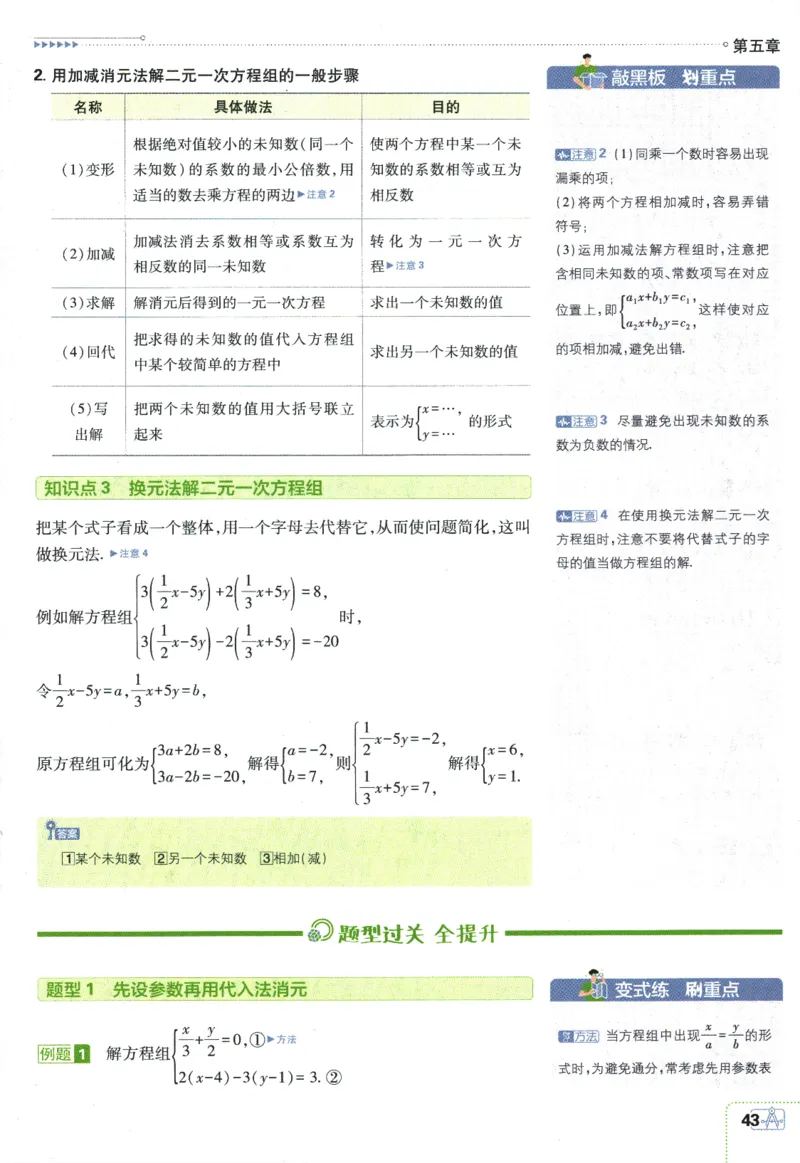 第五章
2. 用加减消元法解二元一次方程组的一般步骤
名称 具体做法 目的
(1)变形
根据绝对值较小的未知数(同一个
未知数)的系数的最小公倍数,用
适当的数去乘方程的两边▶注意2
使两个方程中某一个未
知数的系数相等或互为
相反数
(2)加减
加减法消去系数相等或系数互为
相反数的同一未知数
转化为一元一次方
程▶注意3
(3)求解 解消元后得到的一元一次方程 求出一个未知数的值
(4)回代
把求得的未知数的值代入方程组
中某个较简单的方程中
求出另一个未知数的值
(5)写
出解
把两个未知数的值用大括号联立
起来
表示为{x=…, y=… 的形式
知识点3 换元法解二元一次方程组
把某个式子看成一个整体,用一个字母去代替它,从而使问题简化,这叫
做换元法. ▶注意4
例如解方程组{3(1/2x-5y)+2(1/3x+5y)=8,
3(1/2x-5y)-2(1/3x+5y)=-20 时,
令1/2x-5y=a,1/3x+5y=b,
原方程组可化为{3a+2b=8, 3a-2b=-20, 解得{a=-2, b=7, 则{1/2x-5y=-2, 1/3x+5y=7, 解得{x=6, y=1.
答案
1某个未知数 2另一个未知数 3相加(减)
敲黑板 划重点
注意2 (1)同乘一个数时容易出现
漏乘的项;
(2)将两个方程相加减时,容易弄错
符号;
(3)运用加减法解方程组时,注意把
含相同未知数的项、常数项写在对应
位置上,即{a₁x+b₁y=c₁, a₂x+b₂y=c₂, 这样使对应
的项相加减,避免出错.
注意3 尽量避免出现未知数的系
数为负数的情况.
注意4 在使用换元法解二元一次
方程组时,注意不要将代替式子的字
母的值当做方程组的解.
题型过关 全提升
题型1 先设参数再用代入法消元
例题1 解方程组{x/3+y/2=0,①▶方法
2(x-4)-3(y-1)=3.②
变式练 刷重点
方法 当方程组中出现x/a=y/b的形
式时,为避免通分,常考虑先用参数表
43